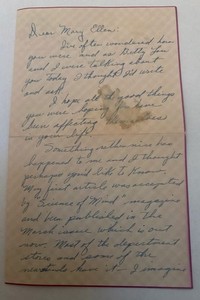 Dear Mary Ellen:
I've often wondered how
you were and as Betty Lou
and I were talking about
you today I thought I'd write
and ask.
I hope all the good things
you were hoping for have
been appearing themselves
in your life.
Something rather nice has
happened to me and I thought
perhaps you'd like to know.
My first article was accepted
by "Science of Mind" magazine
and been published in the
March issue which is out
now. Most of the department
stores and some of the
newsstands have it. I imagine